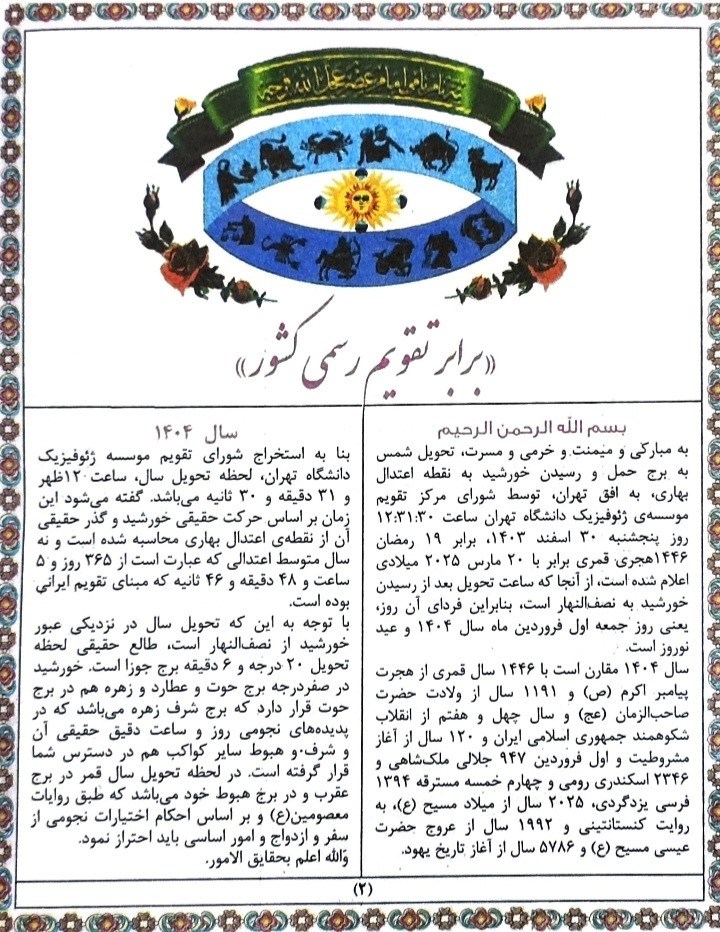 بنام نامی امام عصر عجل الله فرجه
«برابر تقویم رسمی کشور»
بسم الله الرحمن الرحیم
به مبارکی و میمنت و خرمی و مسرت، تحویل شمس
به برج حمل و رسیدن خورشید به نقطه اعتدال
بهاری، به افق تهران، توسط شورای مرکز تقویم
موسسه‌ی ژئوفیزیک دانشگاه تهران ساعت ۱۲:۳۱:۳۰
روز پنجشنبه ۳۰ اسفند ۱۴۰۳، برابر ۱۹ رمضان
۱۴۴۶هجری قمری برابر با ۲۰ مارس ۲۰۲۵ میلادی
اعلام شده است، از آنجا که ساعت تحویل بعد از رسیدن
خورشید به نصف‌النهار است، بنابراین فردای آن روز،
یعنی روز جمعه اول فروردین ماه سال ۱۴۰۴ و عید
نوروز است.
سال ۱۴۰۴ مقارن است با ۱۴۴۶ سال قمری از هجرت
پیامبر اکرم (ص) و ۱۱۹۱ سال از ولادت حضرت
صاحب‌الزمان (عج) و سال چهل و هفتم از انقلاب
شکوهمند جمهوری اسلامی ایران و ۱۲۰ سال از آغاز
مشروطیت و اول فروردین ۹۴۷ جلالی ملک‌شاهی و
۲۳۴۶ اسکندری رومی و چهارم خمسه مسترقه ۱۳۹۴
فرسی یزدگردی، ۲۰۲۵ سال از میلاد مسیح (ع)، به
روایت کنستانتینی و ۱۹۹۲ سال از عروج حضرت
عیسی مسیح (ع) و ۵۷۸۶ سال از آغاز تاریخ یهود.
سال ۱۴۰۴
بنا به استخراج شورای تقویم موسسه ژئوفیزیک
دانشگاه تهران، لحظه تحویل سال، ساعت ۱۲ظهر
و ۳۱ دقیقه و ۳۰ ثانیه می‌باشد. گفته می‌شود این
زمان بر اساس حرکت حقیقی خورشید و گذر حقیقی
آن از نقطه‌ی اعتدال بهاری محاسبه شده است و نه
سال متوسط اعتدالی که عبارت است از ۳۶۵ روز و ۵
ساعت و ۴۸ دقیقه و ۴۶ ثانیه که مبنای تقویم ایرانی
بوده است.
با توجه به این که تحویل سال در نزدیکی عبور
خورشید از نصف‌النهار است، طالع حقیقی لحظه
تحویل ۲۰ درجه و ۶ دقیقه برج جوزا است. خورشید
در صفردرجه برج حوت و عطارد و زهره هم در برج
حوت قرار دارد که برج شرف زهره می‌باشد که در
پدیده‌های نجومی روز و ساعت دقیق حقیقی آن
و شرف و هبوط سایر کواکب هم در دسترس شما
قرار گرفته است. در لحظه تحویل سال قمر در برج
عقرب و در برج هبوط خود می‌باشد که طبق روایات
معصومین(ع) و بر اساس احکام اختیارات نجومی از
سفر و ازدواج و امور اساسی باید احتراز نمود.
والله اعلم بحقایق الامور.
(۲)